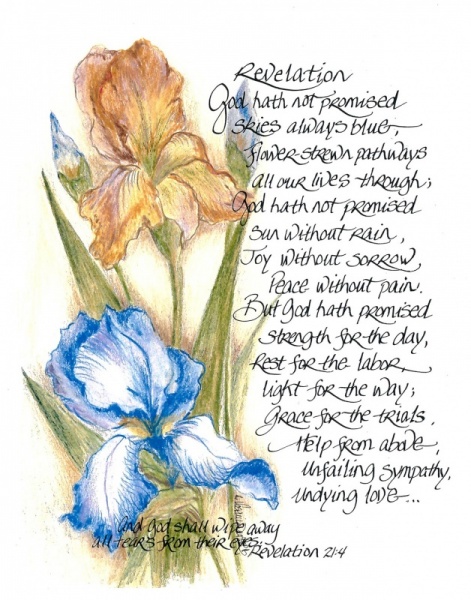 Revelation
God hath not promised
skies always blue,
flower strewn pathways
all our lives through;
God hath not promised
sun without rain,
Joy without sorrow,
Peace without pain.
But God hath promised
strength for the day,
Rest for the labor,
light for the way;
Grace for the trials,
Help from above,
Unfailing sympathy,
undying love...
and god shall wipe away
all tears from their eyes;
Revelation 21:4